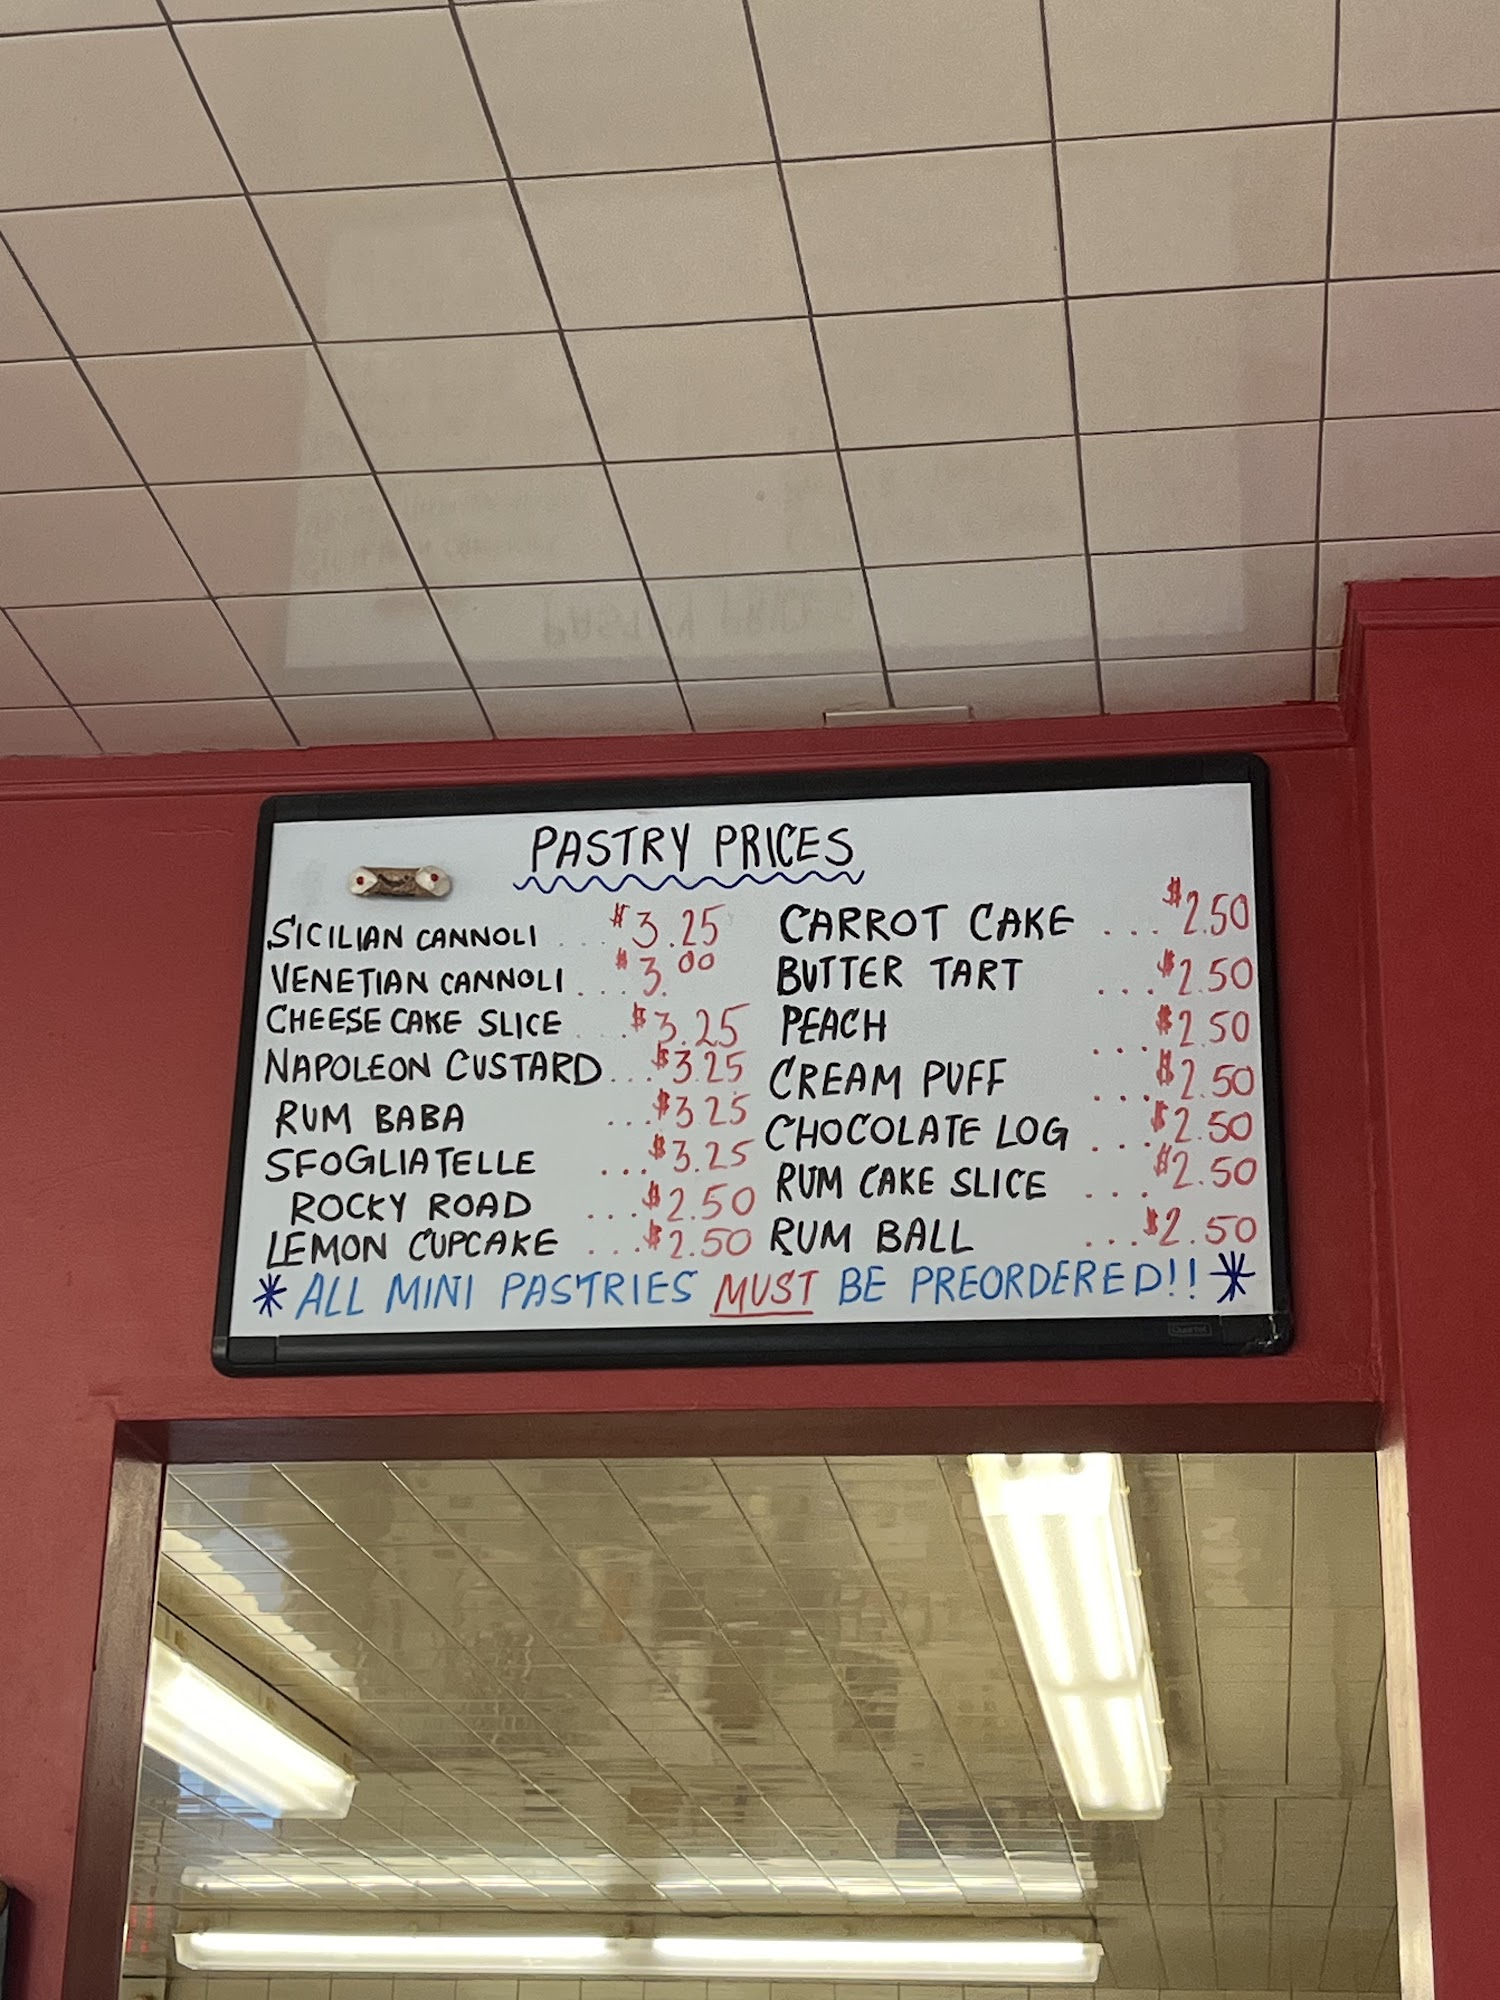 PASTRY PRICES
SICILIAN CANNOLI ... $3.25
VENETIAN CANNOLI ... $3.00
CHEESE CAKE SLICE ... $3.25
NAPOLEON CUSTARD ... $3.25
RUM BABA ... $3.25
SFOGLIATELLE ... $3.25
ROCKY ROAD ... $2.50
LEMON CUPCAKE ... $2.50
CARROT CAKE ... $2.50
BUTTER TART ... $2.50
PEACH ... $2.50
CREAM PUFF ... $2.50
CHOCOLATE LOG ... $2.50
RUM CAKE SLICE ... $2.50
RUM BALL ... $2.50
*ALL MINI PASTRIES MUST BE PREORDERED!!*
Quartet